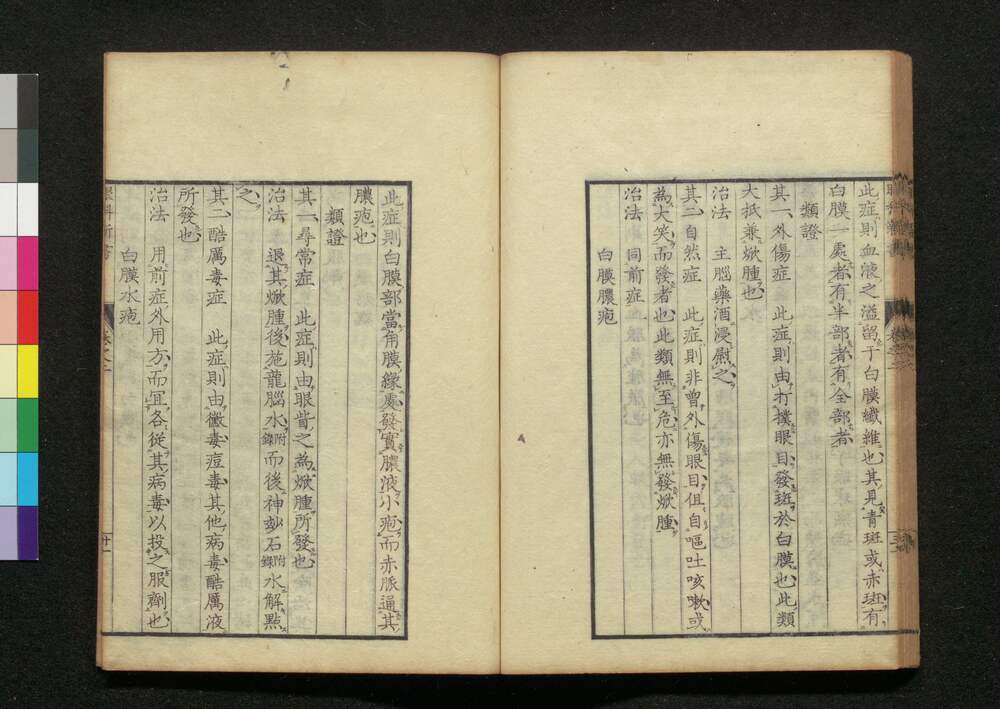 此症則血液之溢留于白膜纖維也其見青斑或赤斑有
白膜一處者有半部者有全部者
類證
其一外傷症　此症則由打撲眼目發斑於白膜也此類
大抵兼焮腫也
治法　主腦藥酒浸慰之
其二自然症　此症則非曾外傷眼目但自嘔吐咳嗽或
為大笑而發者也此類無至危亦無發焮腫
治法　同前症
白膜膿疱
此症則白膜部當角膜緣處發實膿液小疱而赤脈通其
膿疱也
類證
其一尋常症　此症則由眼眥之為焮腫所發也
治法　退其焮腫後施龍腦水附錄而後神妙石附錄水解點
之
其二酷厲毒症　此症則由黴毒痘毒其他病毒酷厲液
所發也
治法　用前症外用方而宜各從其病毒以投之服劑也
白膜水疱
眼科新書
卷之二
十一